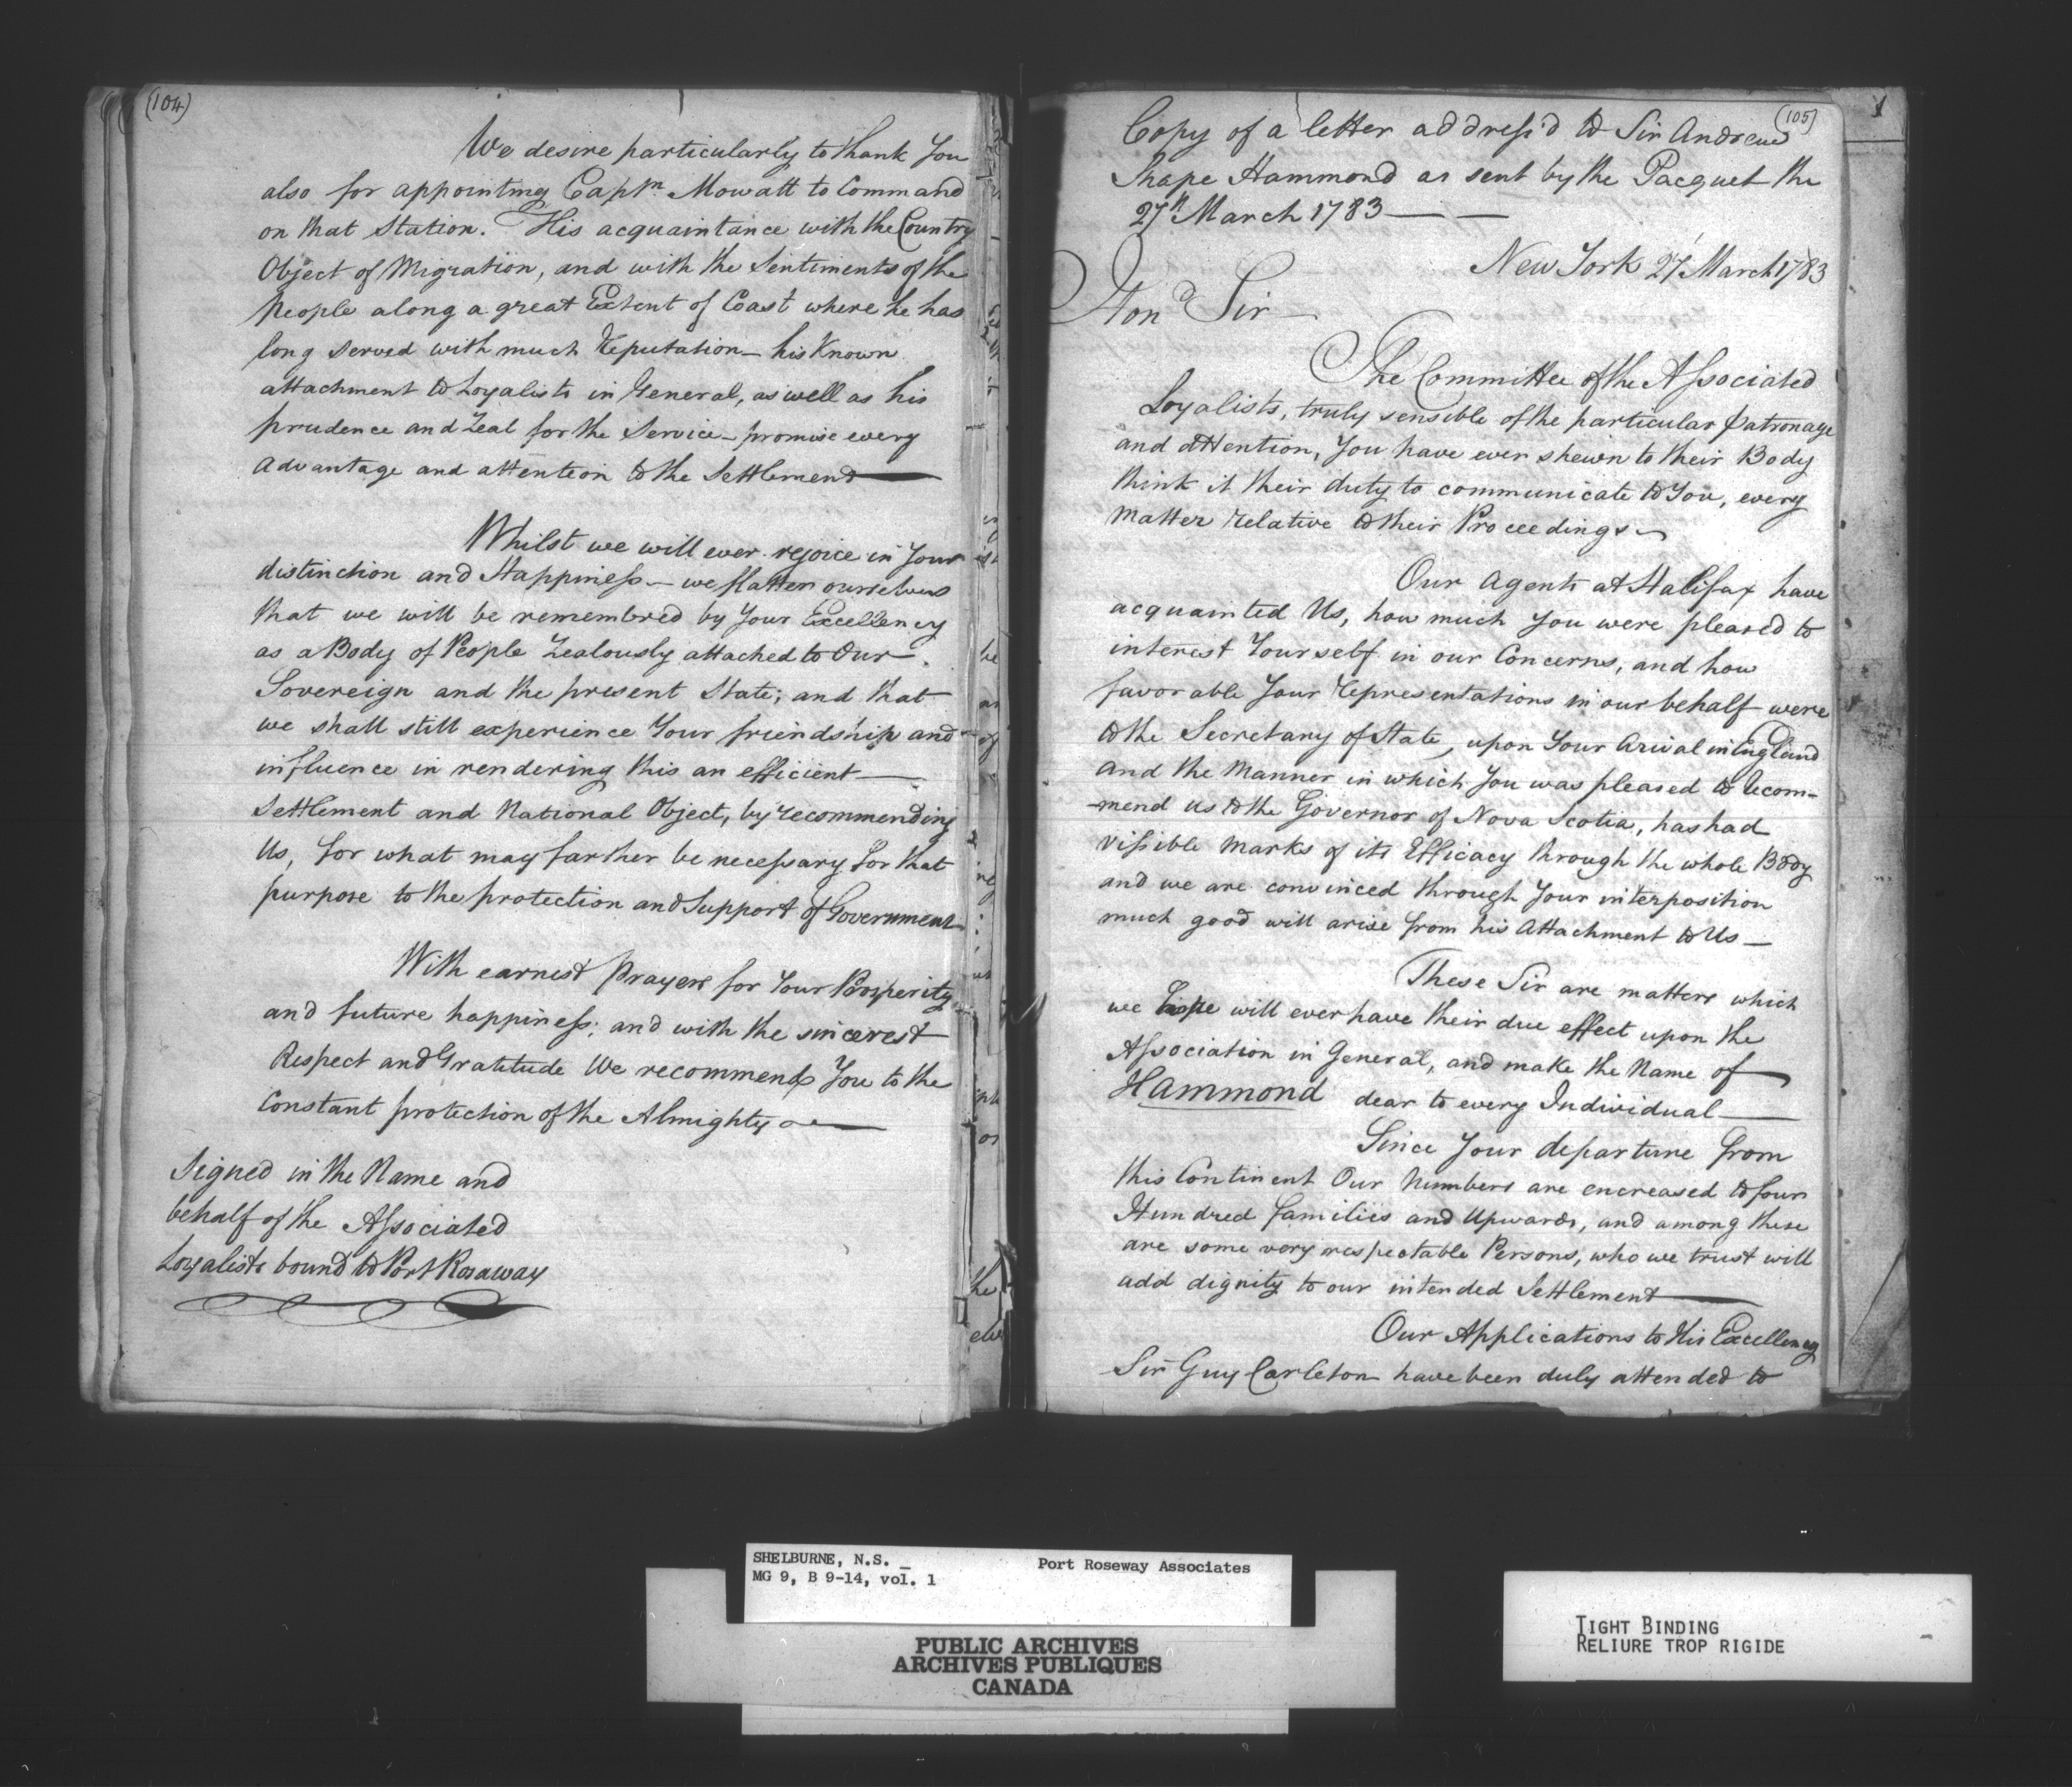 (104)
We desire particularly to thank You
also for appointing Captn. Mowatt to Command
on that Station. His acquaintance with the Country
Object of Migration, and with the Sentiments of the
People along a great Extent of Coast where he has
long served with much reputation – his Known
attachment to Loyalists in General, as well as his
prudence and Zeal for the Service – promise every
advantage and attention to the Settlement —
Whilst we will ever rejoice in Your
distinction and Happiness – we flatter ourselves
that we will be remembered by Your Excellency
as a Body of People Zealously attached to Our
Sovereign and the present State; and that
we shall still experience Your friendship and
influence in rendering this an efficient —
Settlement and National Object, by recommending
Us, for what may farther be necessary for that
purpose to the protection and Support of Government
With earnest Prayers for Your Prosperity
and future happiness; and with the sincerest
Respect and Gratitude We recommend You to the
Constant protection of the Almighty —
Signed in the Name and
behalf of the Associated
Loyalists bound to Port Rosaway
(105)
Copy of a letter address'd to Sir Andrew
Snape Hammond as sent by the Pacquet the
27th March 1783 — —
New York 27 March 1783
Hond Sir –
The Committee of the Associated
Loyalists, truly sensible of the particular patronage
and attention, You have ever shewn to their Body
think it their duty to communicate to You, every
Matter relative to their Proceedings –
Our Agents at Halifax have
acquainted Us, how much You were pleased to
interest Yourself in our Concerns, and how
favorable Your representations in our behalf were
to the Secretary of State, upon Your Arival in England
and the Manner in which You was pleased to recom-
-mend us to the Governor of Nova Scotia, has had
Vissible marks of its Efficacy through the whole Body
and we are convinced through Your interposition
much good will arise from his Attachment to Us —
These Sir are matters which
we hope will ever have their due effect upon the
Association in General, and make the Name of
Hammond dear to every Individual —
Since Your departure from
this Continent Our Numbers are encreased to four
Hundred families and Upwards, and among these
are some very respectable Persons, who we trust will
add dignity to our intended Settlement —
Our Applications to His Excellency
Sir Guy Carleton have been duly attended to
SHELBURNE, N.S. _ Port Roseway Associates
MG 9, B 9-14, vol. 1
PUBLIC ARCHIVES
ARCHIVES PUBLIQUES
CANADA
TIGHT BINDING
RELIURE TROP RIGIDE